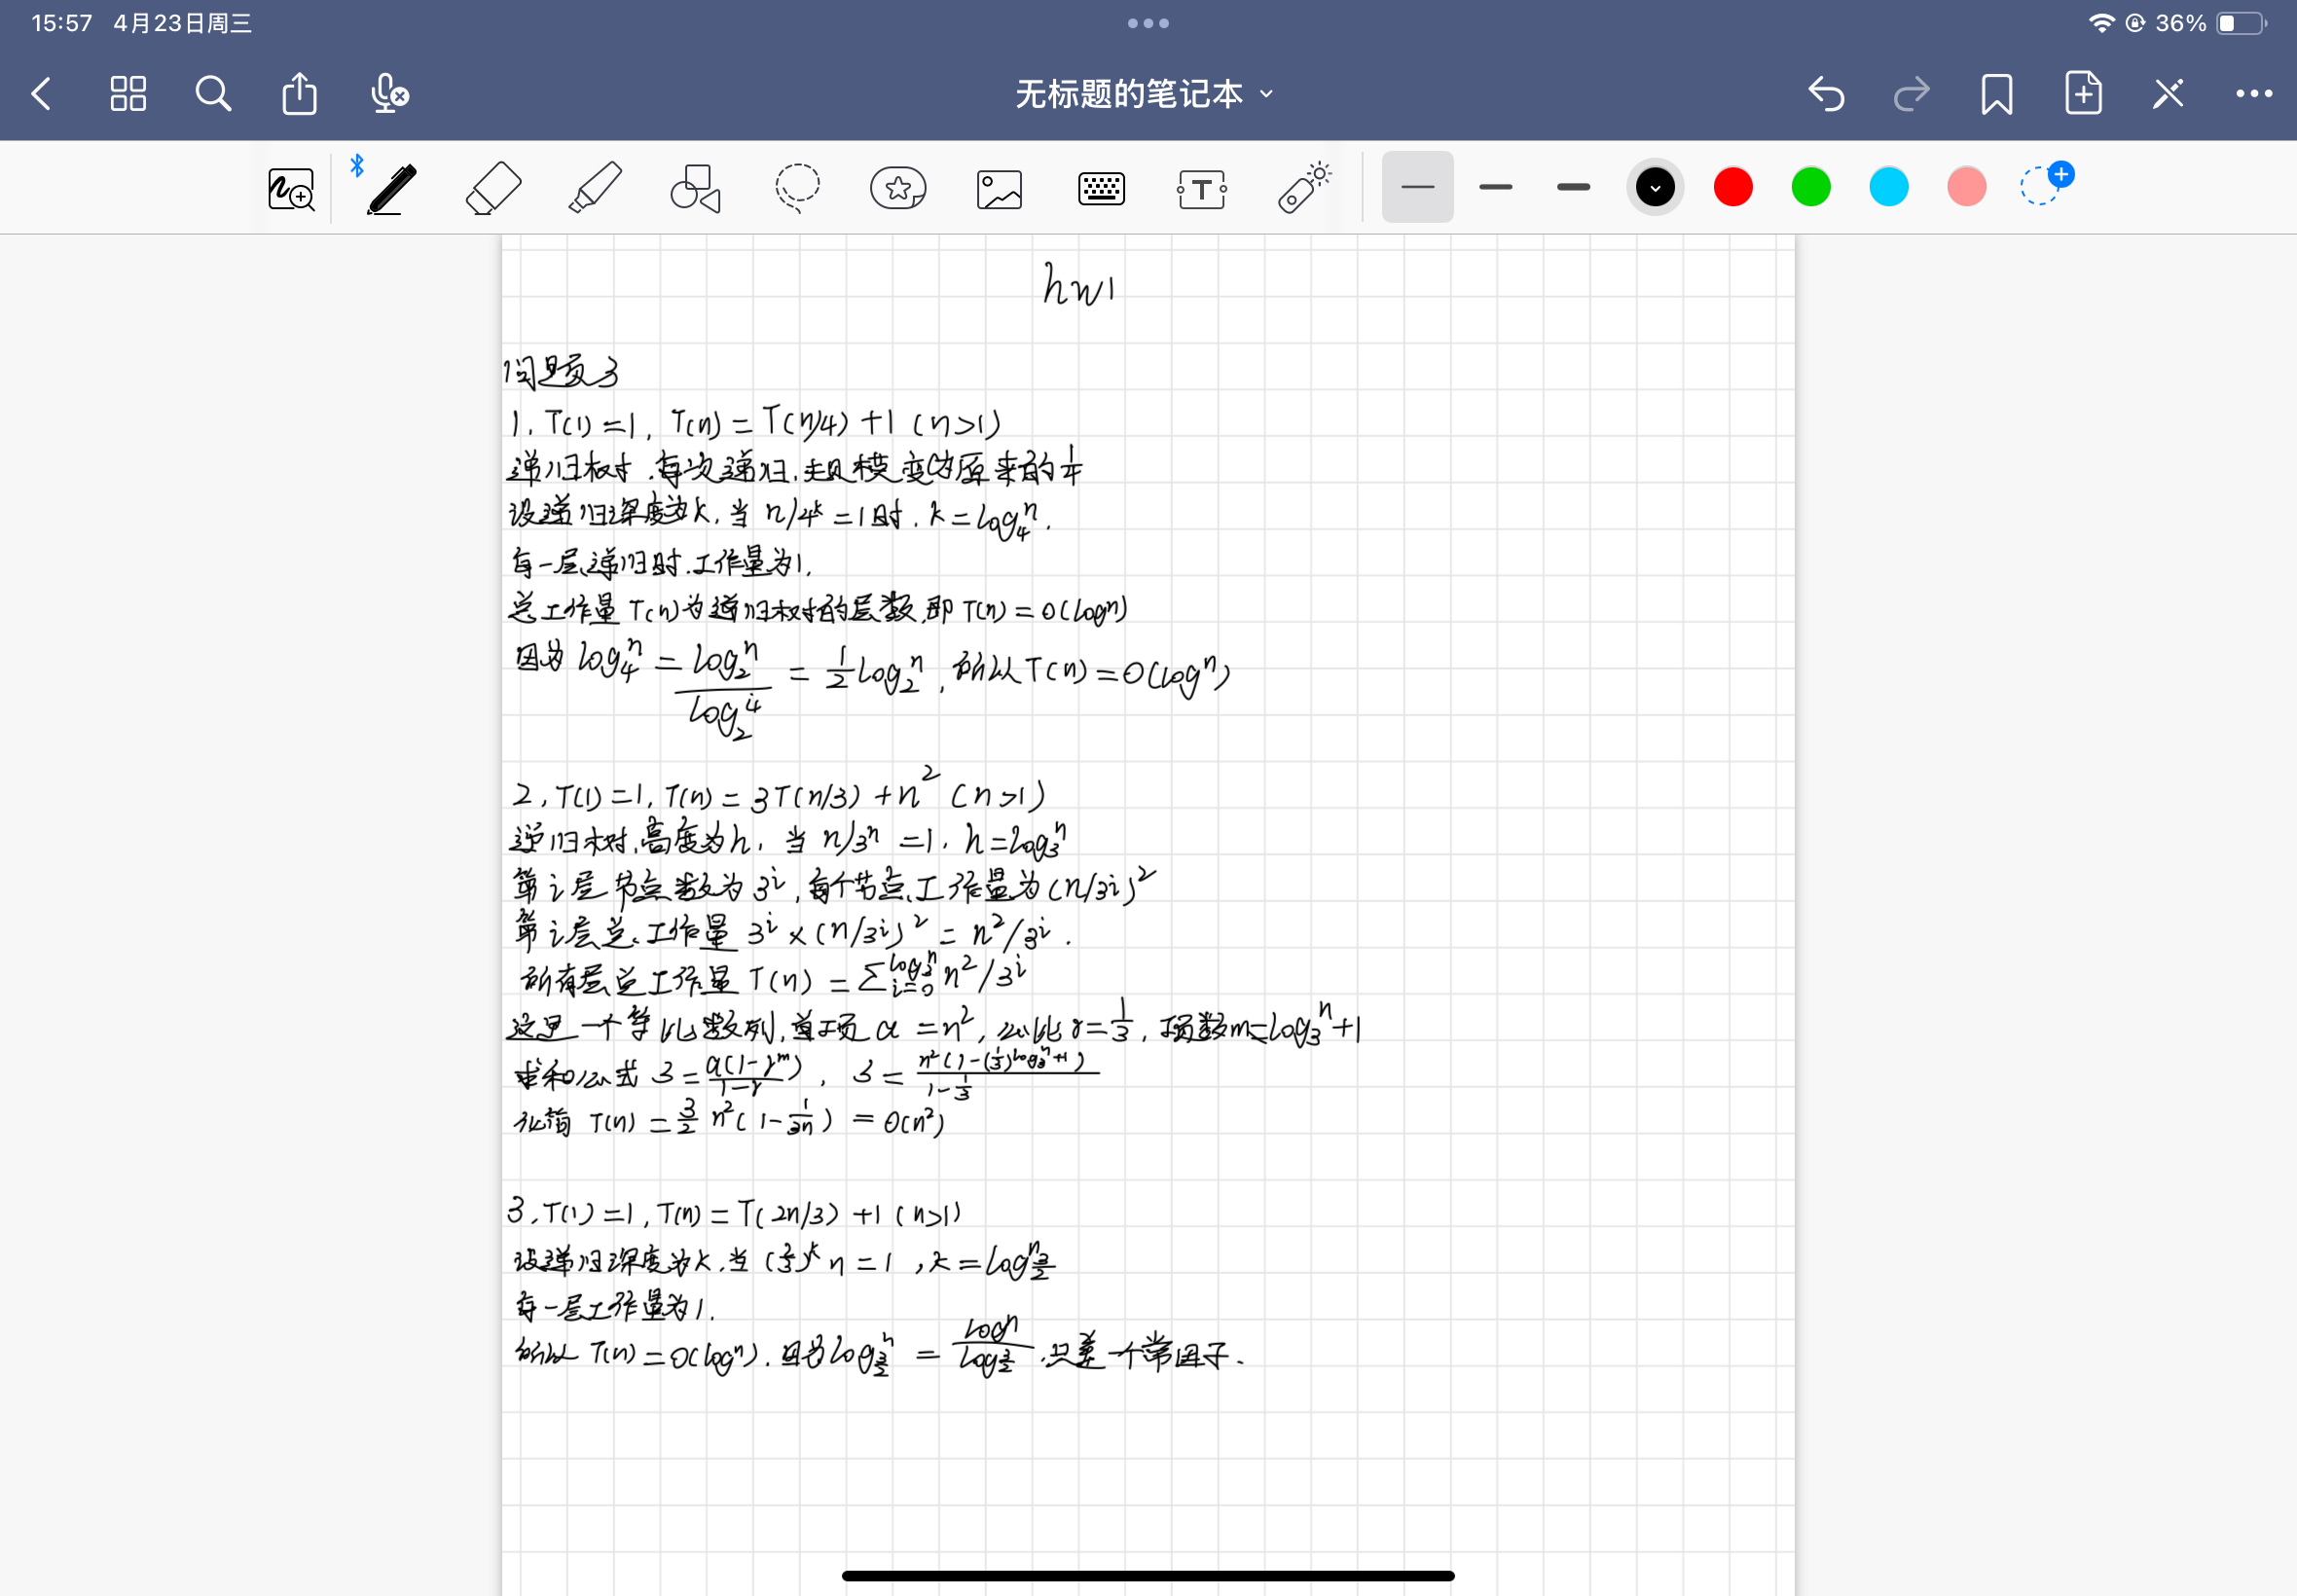 15:57 4月23日周三
36%
无标题的笔记本
hw1
问题3
1. T(1)=1, T(n)=T(n/4)+1 (n>1)
递归树,每次递归,规模变为原来的1/4
设递归深度为k,当 n/4^k=1时,k=log_4^n.
每一层递归时,工作量为1.
总工作量T(n)为递归树的层数,即T(n)=O(log^n)
因为 log_4^n = log_2^n / log_2^4 = 1/2 log_2^n, 所以T(n)=O(log^n)
2, T(1)=1, T(n)=3T(n/3)+n^2 (n>1)
递归树,高度为h, 当 n/3^n=1, h=log_3^n
第i层节点数为3^i,每个节点工作量为(n/3^i)^2
第i层总工作量 3^i×(n/3^i)^2=n^2/3^i.
所有层总工作量 T(n)=∑_{i=0}^{log_3^n} n^2/3^i
这是一个等比数列,首项a=n^2,公比r=1/3,项数m=log_3^n+1
求和公式 S=a(1-r^m)/(1-r), S=n^2(1-(1/3)^{log_3^n+1})/(1-1/3)
化简 T(n)=3/2 n^2(1-1/3n)=O(n^2)
3, T(1)=1, T(n)=T(2n/3)+1 (n>1)
设递归深度为k,当(2/3)^k n=1, k=log_{3/2}^n
每一层工作量为1.
所以 T(n)=O(log^n).因为log_{3/2}^n = log^n / log 3/2,只差一个常因子.